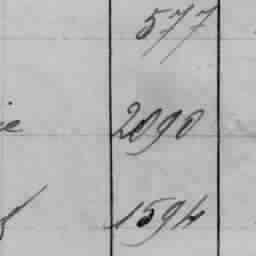 577
2090
1594